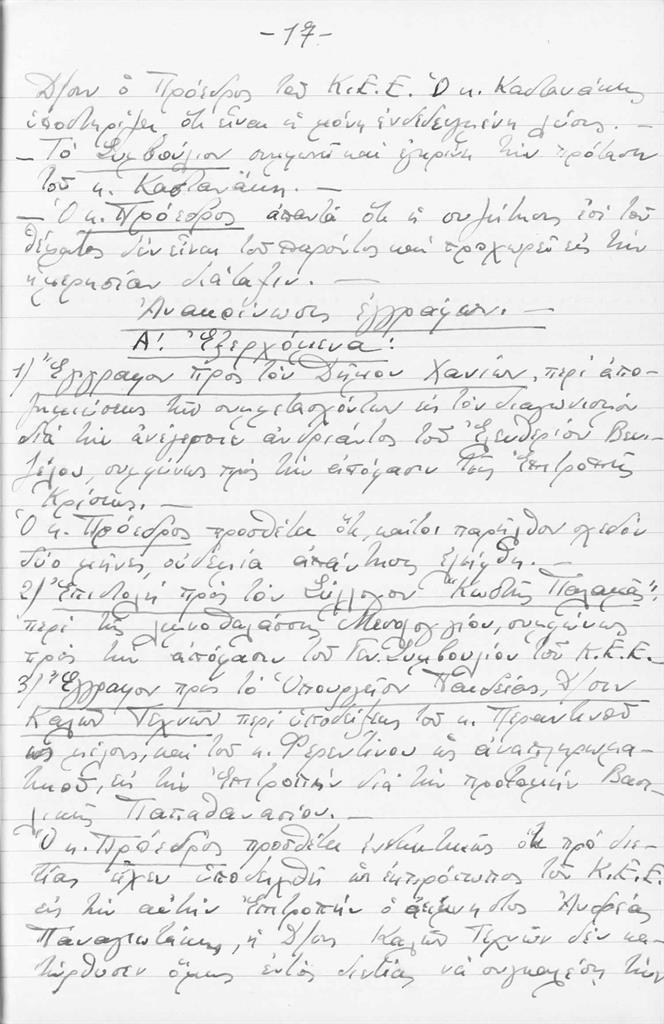 -17-
Δ/σιν ὁ Πρόεδρος τοῦ Κ.Ε.Ε. Ὁ κ. Καστανάκης
ὑποστηρίζει ὅτι εἶναι ἡ μόνη ἐνδεδειγμένη λύσις. —
- Τὸ Συμβούλιον συμφωνεῖ καὶ ἐγκρίνει τὴν πρότασιν
τοῦ κ. Καστανάκη. —
- Ὁ κ. Πρόεδρος ἀπαντᾶ ὅτι ἡ συζήτησις ἐπὶ τοῦ
θέματος δὲν εἶναι τοῦ παρόντος καὶ προχωρεῖ εἰς τὴν
ἡμερησίαν διάταξιν. —
Ἀνακοίνωσις ἐγγράφων. —
Α'. Ἐξερχόμενα:
1) Ἔγγραφον πρὸς τὸν Δῆμον Χανίων, περὶ ἀπο-
ζημιώσεως τῶν συμμετασχόντων εἰς τὸν διαγωνισμὸν
διὰ τὴν ἀνέγερσιν ἀνδριάντος τοῦ Ἐλευθερίου Βενι-
ζέλου, συμφώνως πρὸς τὴν ἀπόφασιν τῆς Ἐπιτροπῆς
Κρίσεως. —
Ὁ κ. Πρόεδρος προσθέτει ὅτι, καίτοι παρῆλθον σχεδὸν
δύο μῆνες, οὐδεμία ἀπάντησις ἐλήφθη. —
2) Ἐπιστολὴ πρὸς τὸν Σύλλογον "Κωστῆς Παλαμᾶς",
περὶ τῆς λιμνοθαλάσσης Μεσολογγίου, συμφώνως
πρὸς τὴν ἀπόφασιν τοῦ Γεν. Συμβουλίου τοῦ Κ.Ε.Ε. -
3) Ἔγγραφον πρὸς τὸ Ὑπουργεῖον Παιδείας, Δ/σιν
Καλῶν Τεχνῶν περὶ ὑποδείξεως τοῦ κ. Περαντινοῦ
ὡς μέλους, καὶ τοῦ κ. Φερεντίνου ὡς ἀναπληρωμα-
τικοῦ, εἰς τὴν Ἐπιτροπὴν διὰ τὴν προτομὴν Βασι-
λικῆς Παπαθανασίου. —
Ὁ κ. Πρόεδρος προσθέτει ἐνδεικτικῶς ὅτι πρὸ διε-
τίας εἶχεν ὑποδειχθῆ ὡς ἐκπρόσωπος τοῦ Κ.Ε.Ε.
εἰς τὴν αὐτὴν Ἐπιτροπὴν ὁ ἀείμνηστος Ἀνδρέας
Παναγιωτάκης, ἡ Δ/σις Καλῶν Τεχνῶν δὲν κα-
τώρθωσεν ὅμως ἐντὸς διετίας νὰ συγκαλέσῃ τὴν